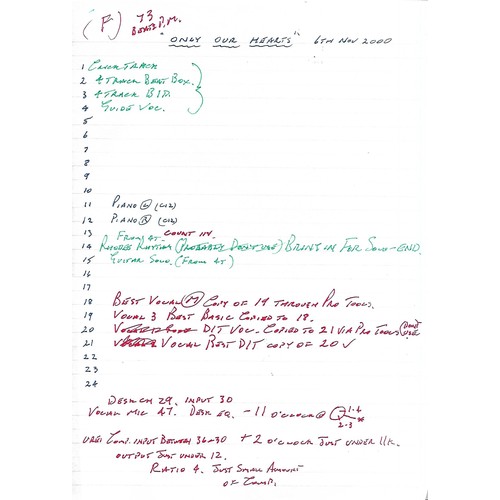 (F) 73
BEATS P.M.
"ONLY OUR HEARTS" 6TH NOV 2000
1 CLICK TRACK
2 4 TRACK BEAT BOX.
3 4 TRACK B.I.D.
4 GUIDE VOC.
5
6
7
8
9
10
11 PIANO (L) (C12)
12 PIANO (R) (C12)
13 FROM 4T. COUNT IN.
14 RHODES RHYTHM (PROBABLY DON'T USE) BRING IN FOR SOLO - END.
15 GUITAR SOLO. (FROM 4T)
16
17
18 BEST VOCAL (M) COPY OF 19 THROUGH PRO TOOLS.
19 VOCAL 3 BEST BASIC COPIED TO 18.
20 D/T VOC. COPIED TO 21 VIA PRO TOOLS (DON'T USE
21 VOCAL BEST D/T COPY OF 20 V
22
23
24
DESK CH 29. INPUT 30
VOCAL MIC 47. DESK EQ. -11 O'CLOCK @ 1.4
2-3
UREI COMP. INPUT BETWEEN 36-30 + 2 O'CLOCK JUST UNDER 11K.
OUTPUT JUST UNDER 12.
RATIO 4. JUST SMALL AMOUNT
OF COMP.